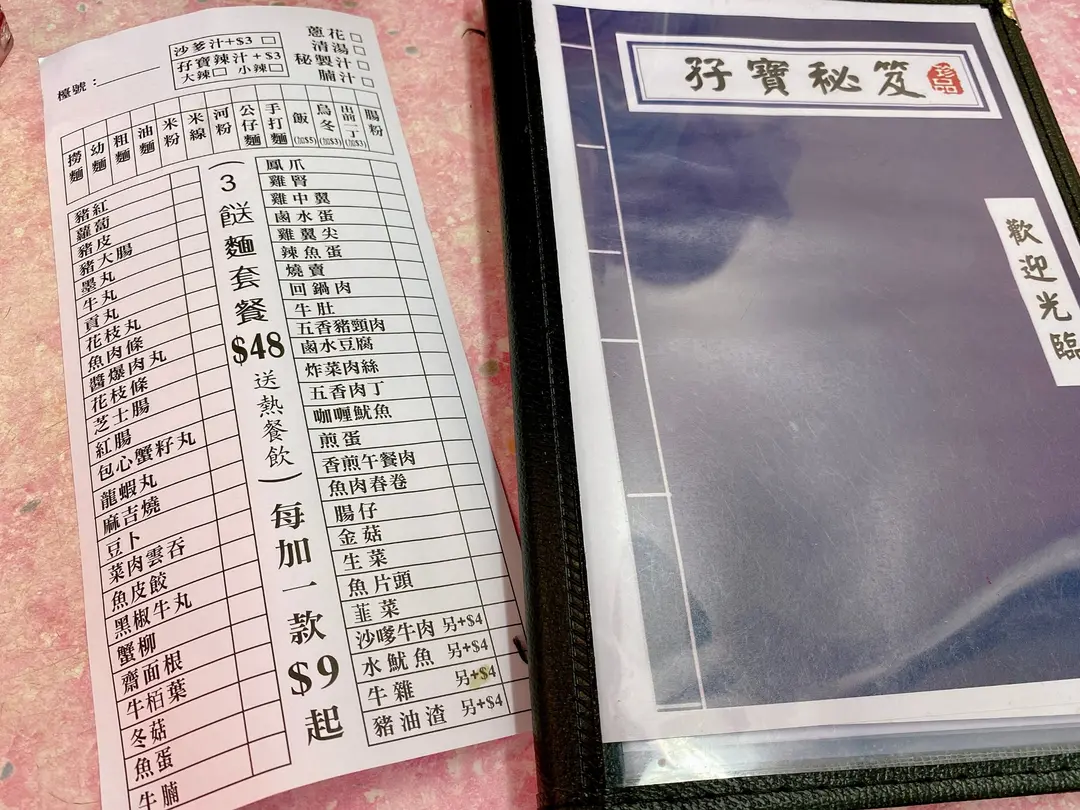 檯號：
沙爹汁+$3
孖寶辣汁+$3
大辣 小辣
蔥花
清湯
秘製汁
腩汁
撈麵
幼麵
粗麵
油麵
米粉
米線
河粉
公仔麵
手打麵
飯(加$5)
烏冬(加$3)
出前一丁(加$3)
腸粉
豬紅
蘿蔔
豬皮
豬大腸
墨丸
牛丸
貢丸
花枝丸
魚肉條
醬爆肉丸
花枝條
芝士腸
紅腸
包心蟹籽丸
龍蝦丸
麻吉燒
豆卜
菜肉雲吞
魚皮餃
黑椒牛丸
蟹柳
齋面根
牛栢葉
冬菇
魚蛋
牛腩
(3餸麵套餐$48送熱餐飲)每加一款$9起
鳳爪
雞腎
雞中翼
鹵水蛋
雞翼尖
辣魚蛋
燒賣
回鍋肉
牛肚
五香豬頸肉
鹵水豆腐
炸菜肉絲
五香肉丁
咖喱魷魚
煎蛋
香煎午餐肉
魚肉春卷
腸仔
金菇
生菜
魚片頭
韮菜
沙嗲牛肉 另+$4
水魷魚 另+$4
牛雜 另+$4
豬油渣 另+$4
孖寶秘笈
珍品
歡迎光臨